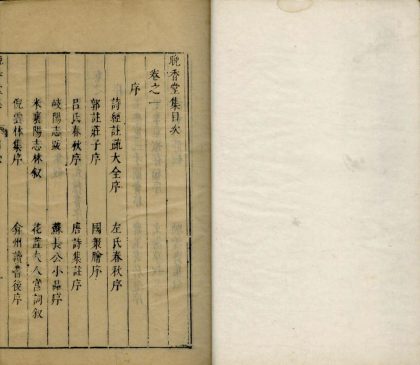 晚香堂集目次
卷之一
序
詩經註疏大全序 左氏春秋序
郭註莊子序 國策膾序
呂氏春秋序 唐詩集註序
岐陽志敘 蘇長公小品序
米襄陽志林叙 花蕊夫人宮詞叙
倪雲林集序 弇州讀書後序